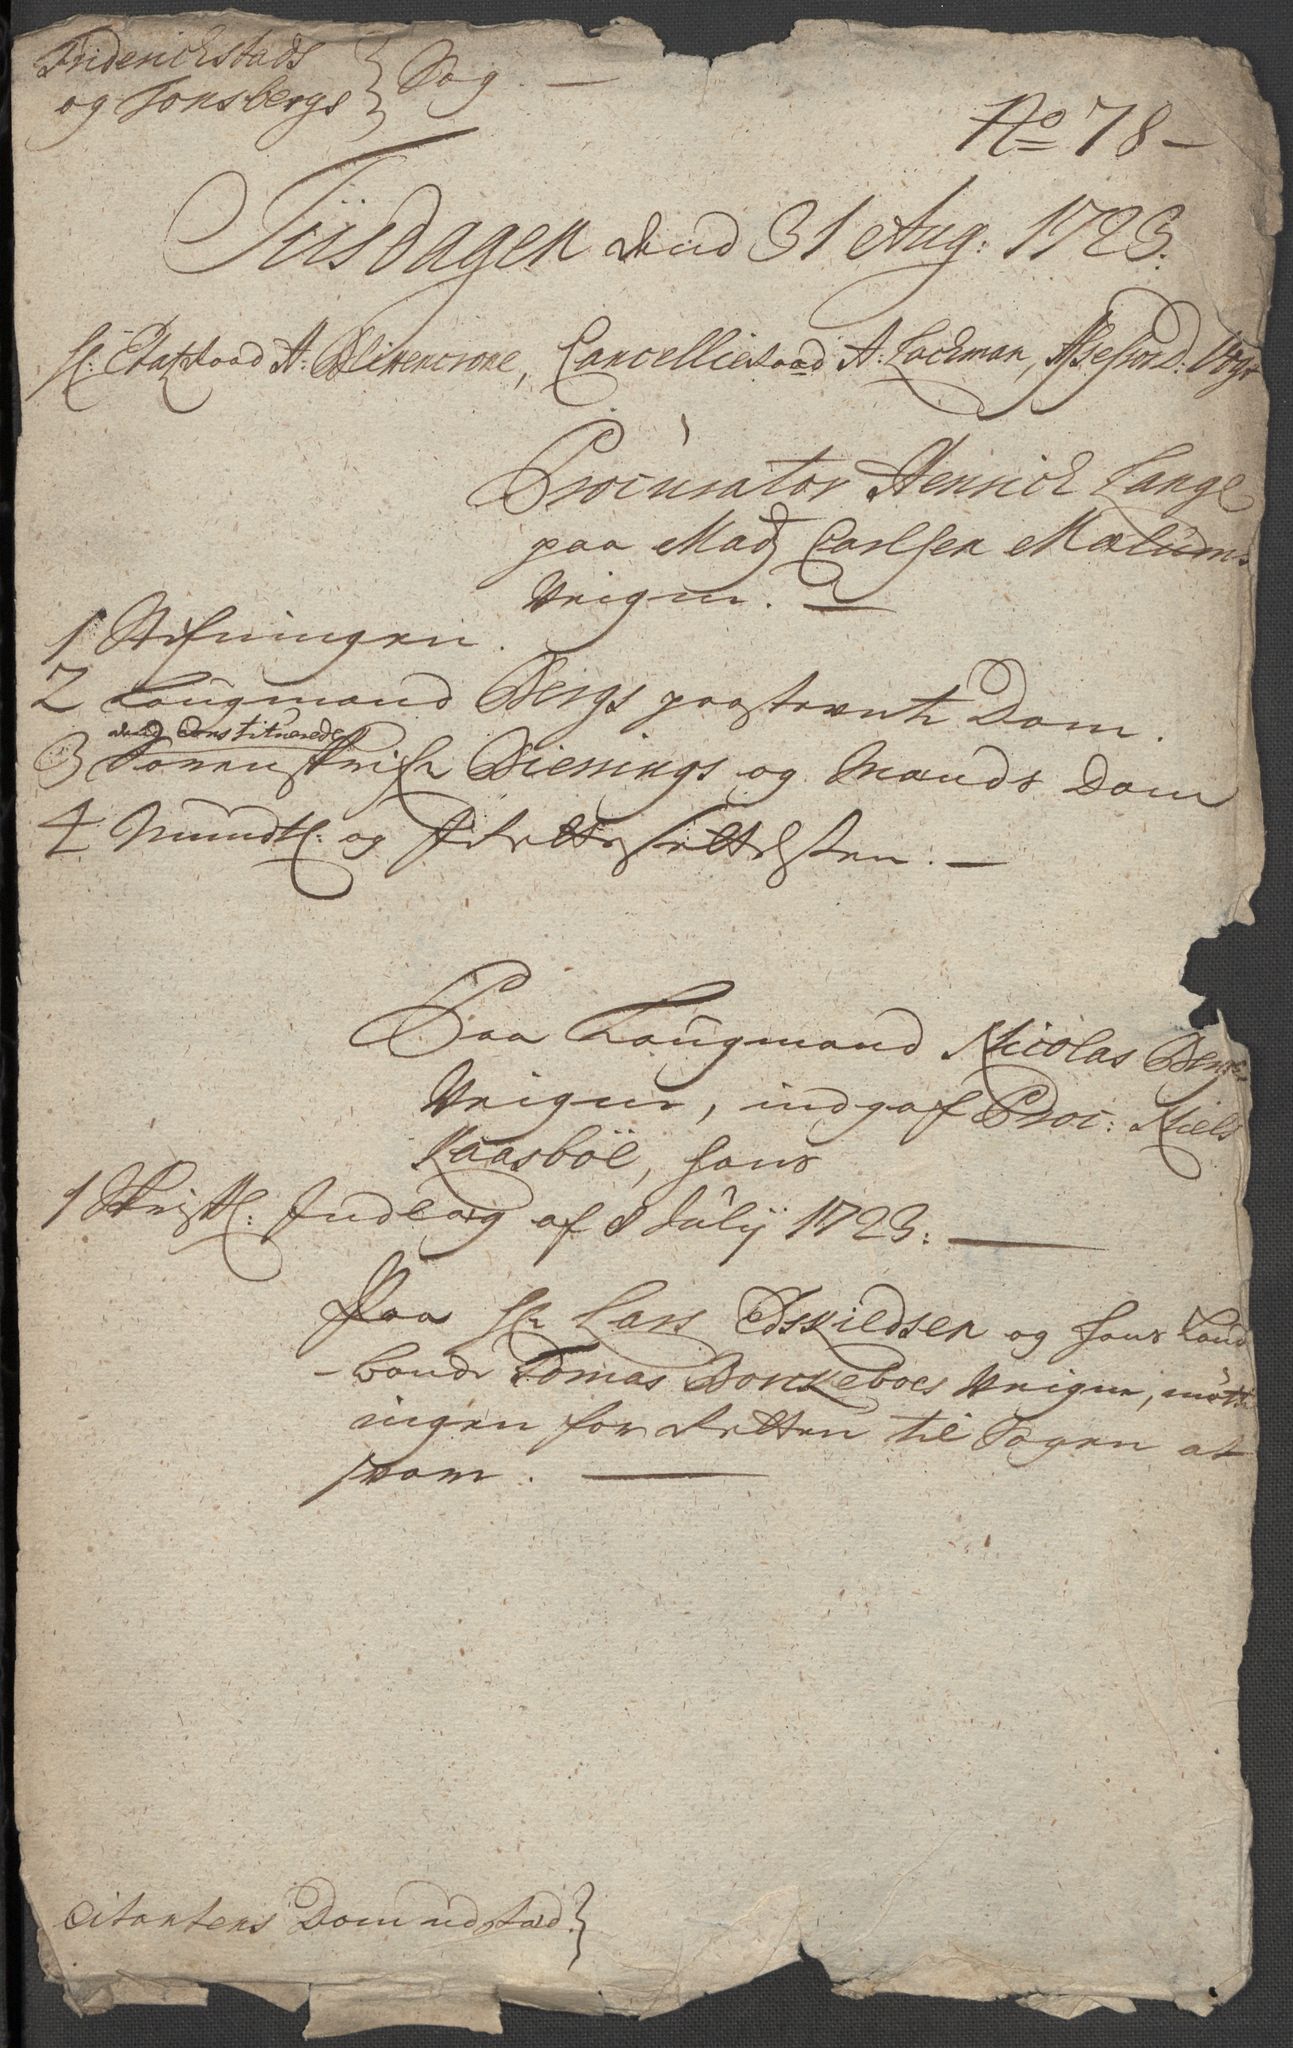 Friderichstads
og Tonsbergs } Sag. —
No 78 —
Tiisdagen dend 31 Aug: 1723.
H: Etatzraad A: Blixencrone, Cancellieraad A. Lachman, Assessor D: Vogt
Procurator Henrich Lange
paa Madz Carlsen Mælums
Veigne. —
1 Stefningen.
2 Laugmand Bergs paastevnte Dom.
dend constituerede
3 Sorenskrifr Bierings og Mænds Dom
4 Mundtl: og Irettesettelsen. —
Paa Laugmand Nicolas Bergs
Veigne, indgaf Proc: Niels
Kaasbøl, hans
1 Skriftl: Indlæg af 8 Julij 1723. —
Paa Hr Lars Edskildsen og hans Land
-bonde Tomas Bonkeboes Veigne, mötte
ingen for Retten til Sagen at
svare. —
Citantens Dom udstæd }